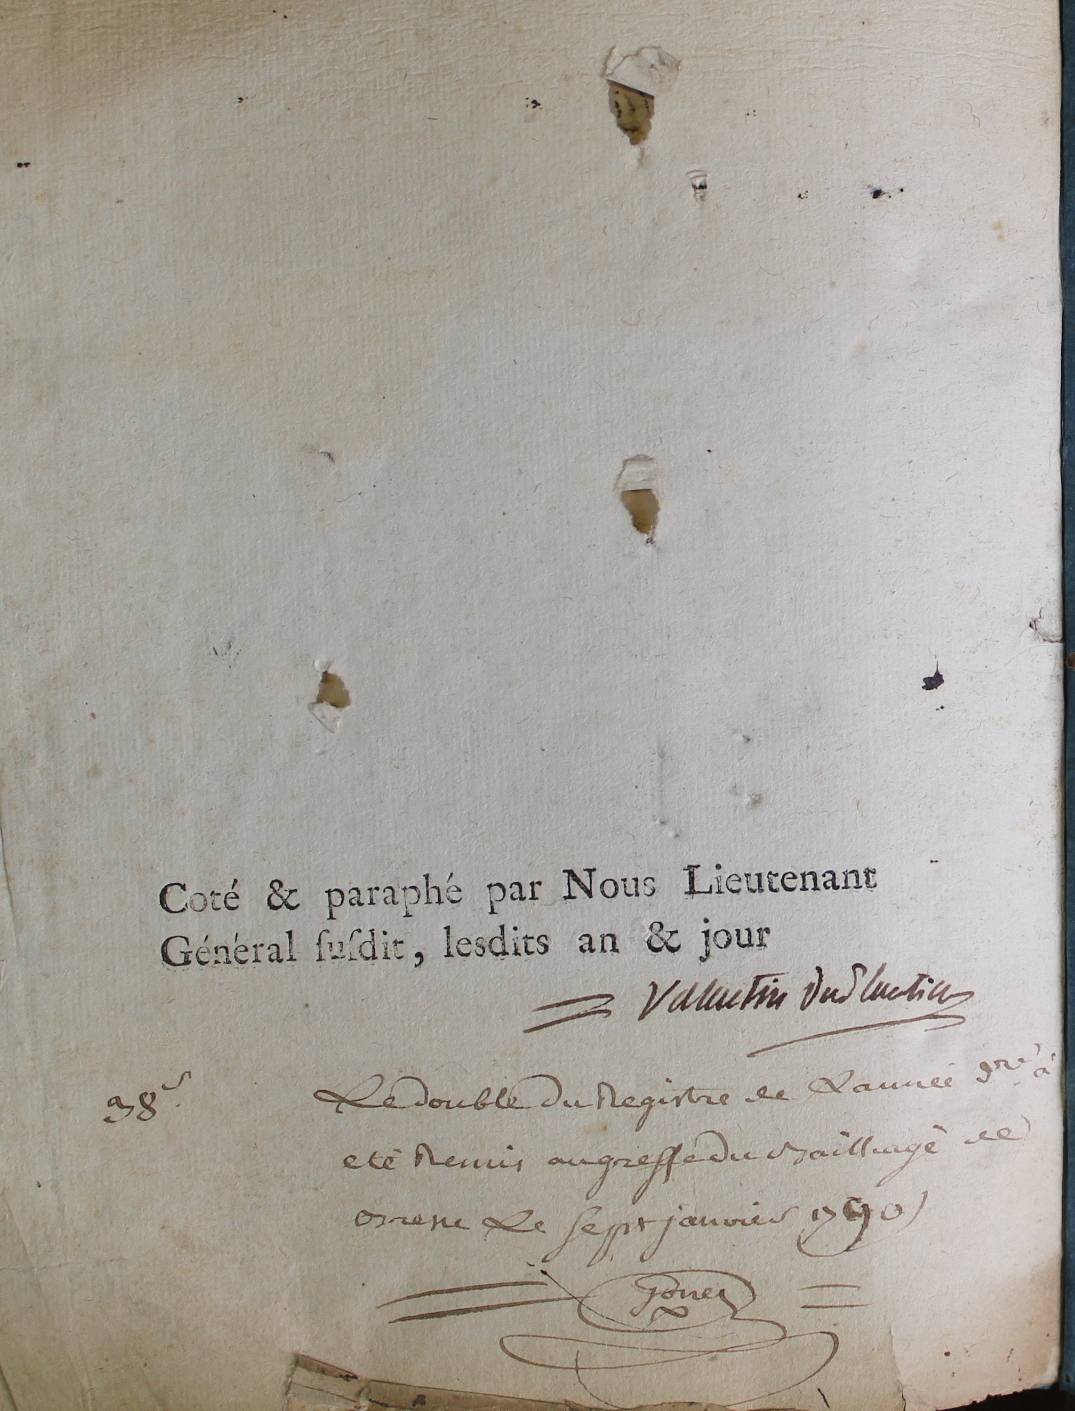 Coté & paraphé par Nous Lieutenant
Général ſuſdit, lesdits an & jour
Valentin
38ˢ. Le double du Registre de L'année dʳᵉ à
eté Remis au greffe du Bailliage de
Le sept janvier 1790